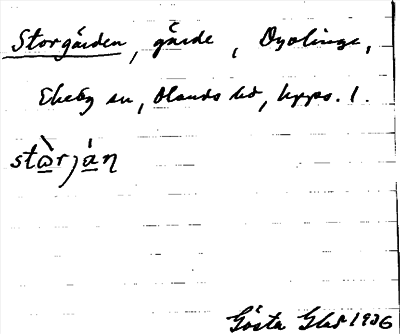 Storgården, gärde, Dyvlinge,
Ekeby sn, Olands hd, Upps. l.
stὼrján
Gösta Glad 1936